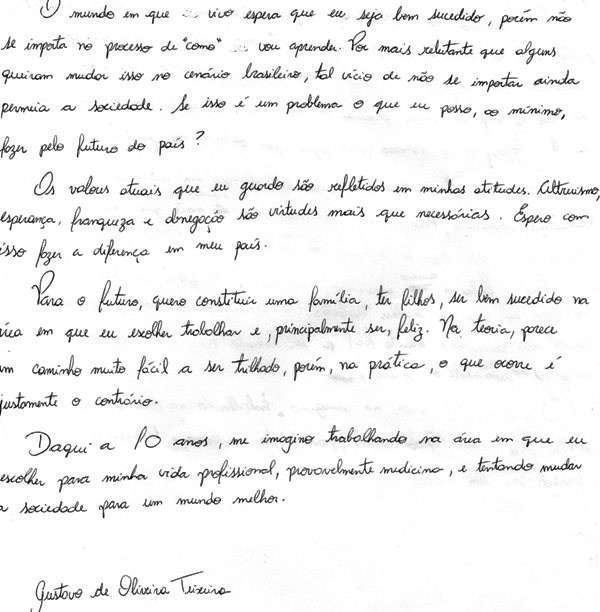 O mundo em que vivo espera que eu seja bem sucedido, porém não
se importa no processo de "como" vou aprender. Por mais relutante que alguns
queiram mudar isso no cenário brasileiro, tal vício de não se importar ainda
permeia a sociedade. Se isso é um problema o que eu posso, ao mínimo,
fazer pelo futuro do país?
Os valores atuais que eu guardo são refletidos em minhas atitudes. Altruísmo,
esperança, franquiza e abnegação são virtudes mais que necessárias. Espero com
isso fazer a diferença em meu país.
Para o futuro, quero constituir uma família, ter filhos, ser bem sucedido na
área em que eu escolher trabalhar e, principalmente ser, feliz. Na teoria, parece
um caminho muito fácil a ser trilhado, porém, na prática, o que ocorre é
justamente o contrário.
Daqui a 10 anos, me imagino trabalhando na área em que eu
escolher para minha vida profissional, provavelmente medicina, e tentando mudar
a sociedade para um mundo melhor.
Gustavo de Oliveira Teixeira